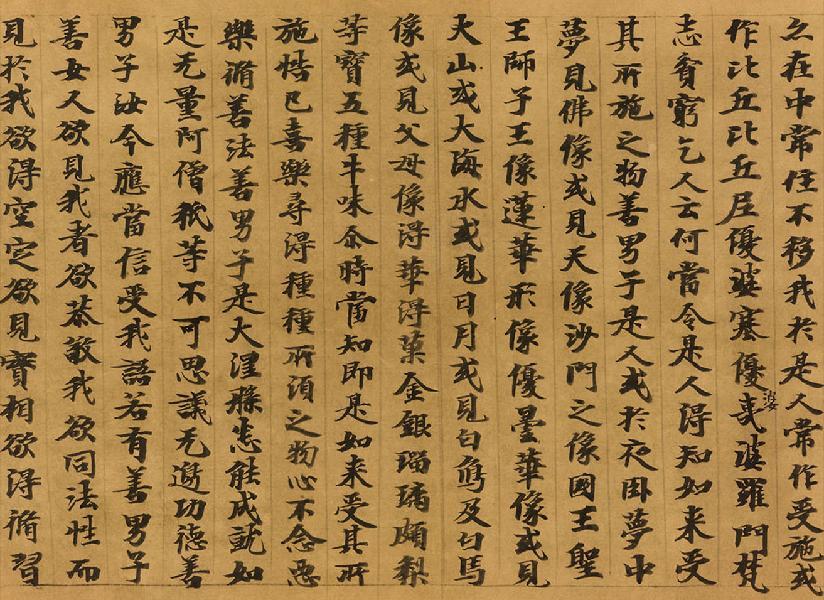 之在中常住不移我於是人常作受施或
作比丘比丘尼優婆塞優婆夷婆羅門梵
志貧窮乞人云何當令是人得知如来受
其所施之物善男子是人或於夜卧夢中
夢見佛像或見天像沙門之像國王聖
王師子王像蓮華形像優曇華像或見
大山或大海水或見日月或見白鳥及白馬
像或見父母像得華得菓金銀瑠璃頗梨
等寶五種牛味尒時當知即是如来受其所
施悟已喜樂尋得種種所須之物心不念惡
樂脩善法善男子是大涅槃悉能成就如
是无量阿僧祇等不可思議无邊功德善
男子汝今應當信受我語若有善男子
善女人欲見我者欲恭敬我欲同法性而
見於我欲得空定欲見實相欲得脩習